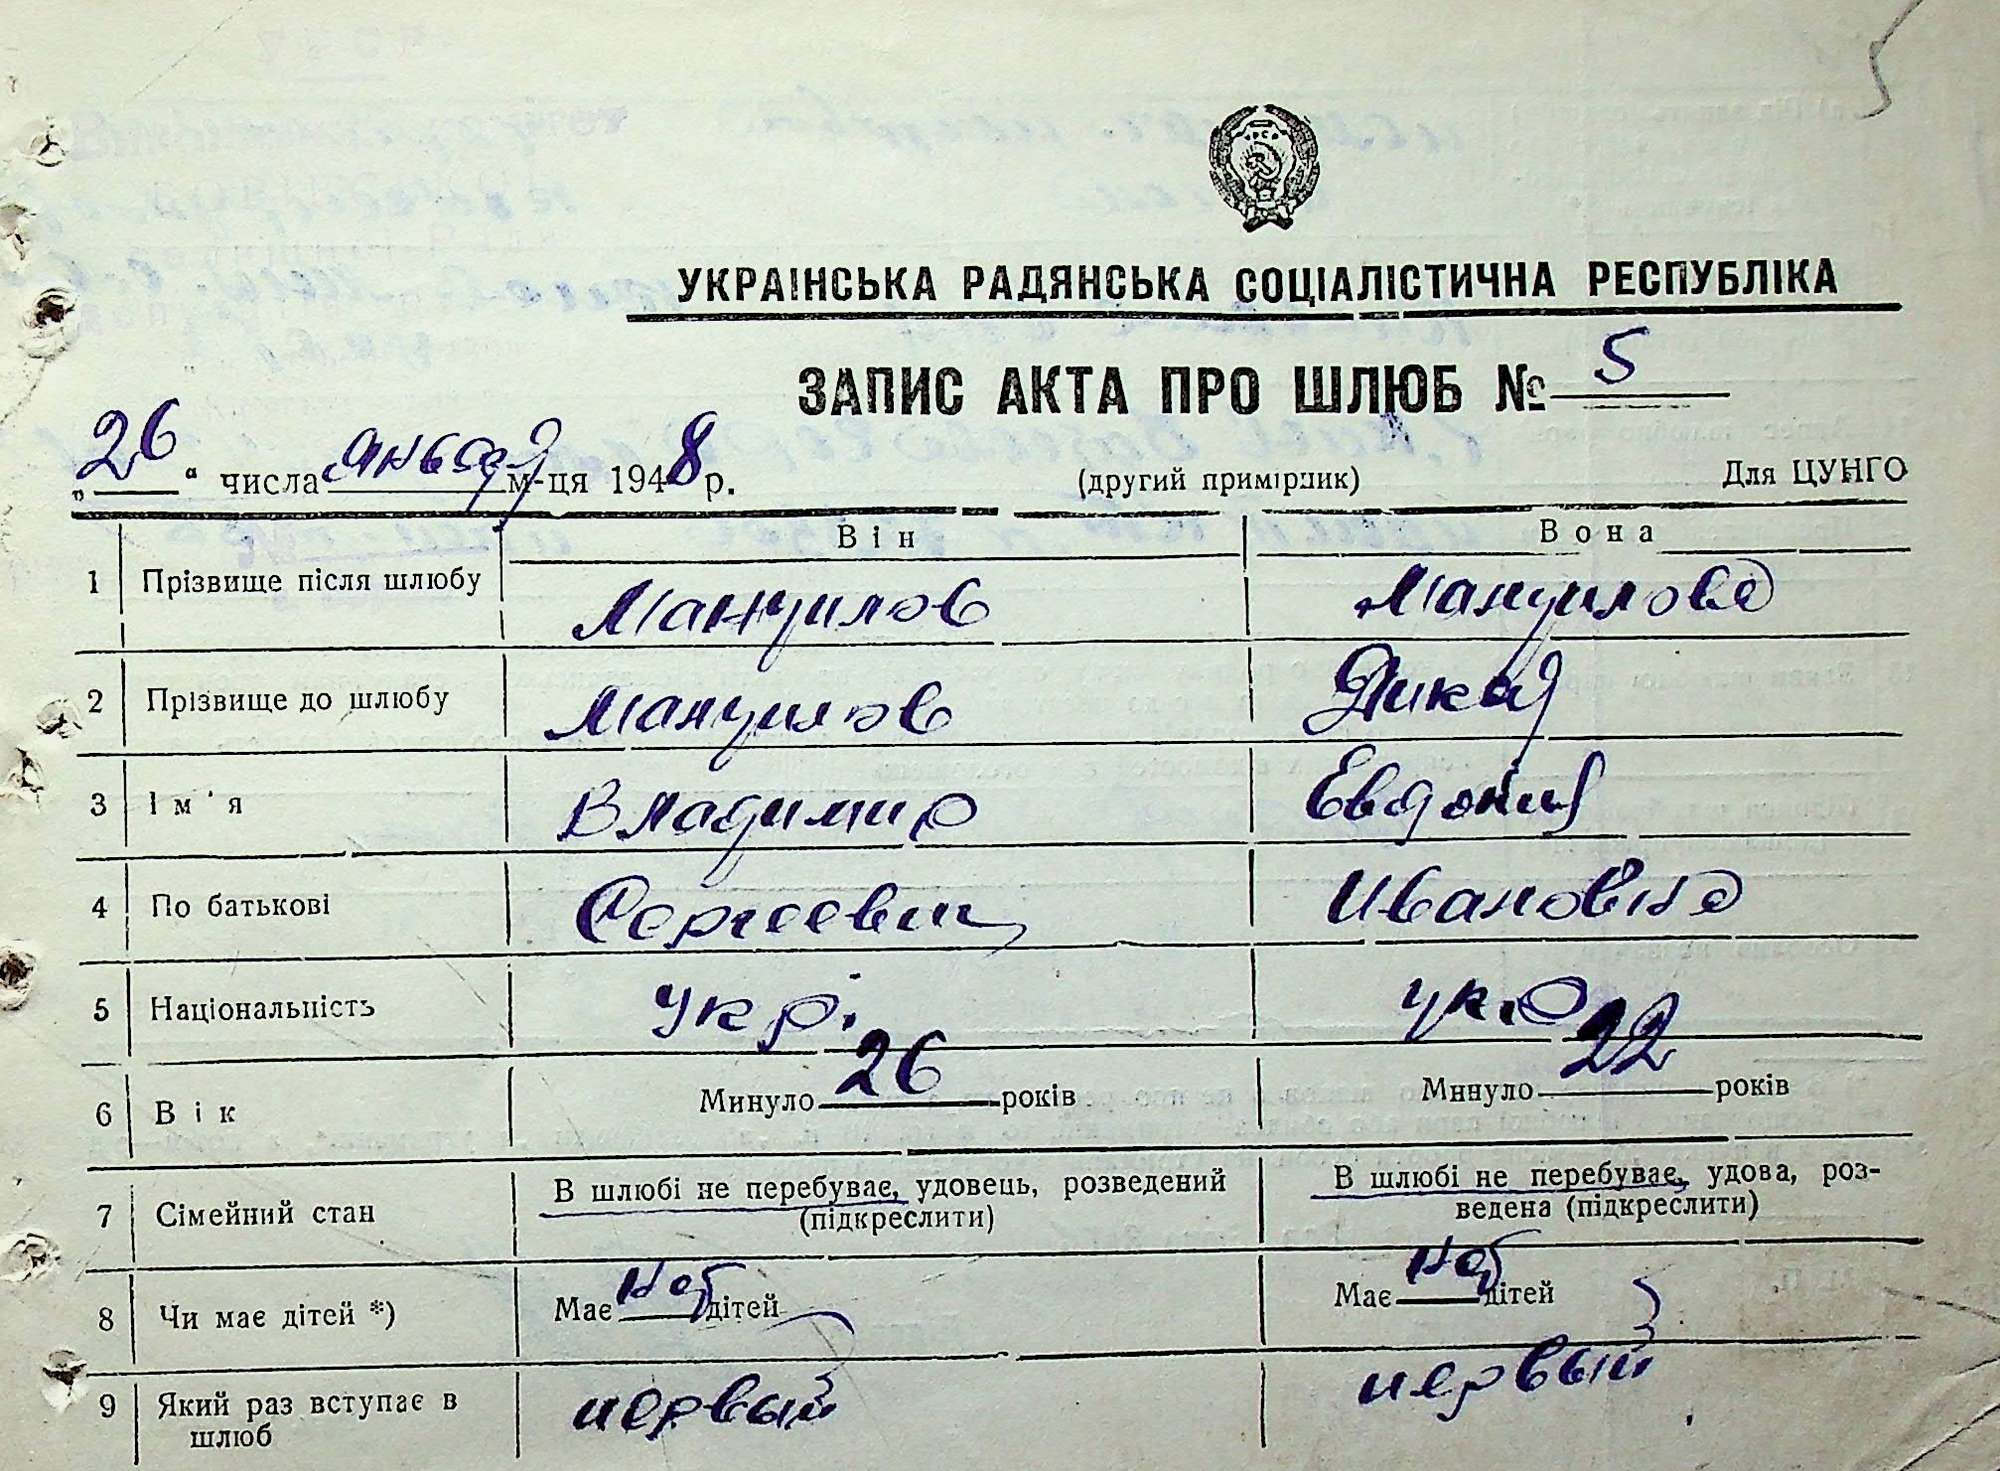 УКРАЇНСЬКА РАДЯНСЬКА СОЦІАЛІСТИЧНА РЕСПУБЛІКА
ЗАПИС АКТА ПРО ШЛЮБ № 5
„26“ числа января м-ця 1948 р. (другий примірник) Для ЦУНГО
Він Вона
1 Прізвище після шлюбу Мануилов Мануилова
2 Прізвище до шлюбу Мануилов Дикая
3 Ім'я Владимир Евдокия
4 По батькові Сергеевич Ивановна
5 Національність укр. укр
6 Вік Минуло 26 років Минуло 22 років
7 Сімейний стан В шлюбі не перебуває, удовець, розведений В шлюбі не перебуває, удова, роз-
(підкреслити) ведена (підкреслити)
8 Чи має дітей *) Має нет дітей Має нет дітей
9 Який раз вступає в первый первый
шлюб